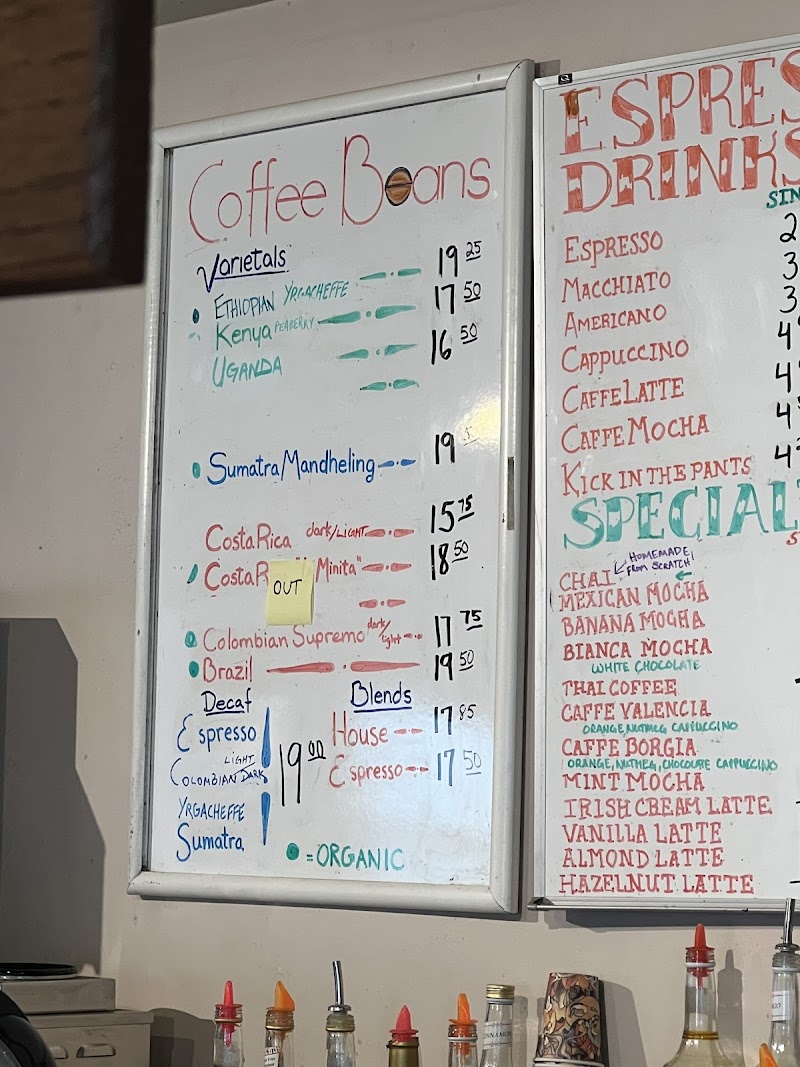 Coffee Beans
Varietals
ETHIOPIAN YRGACHEFFE 19 25
Kenya PEABERRY 17 50
UGANDA 16 50
Sumatra Mandheling 19
Costa Rica dark/LIGHT 15 75
Costa R Minita" 18 50
OUT
Colombian Supremo dark/light 17 75
Brazil 19 50
Decaf
Espresso
LIGHT
COLOMBIAN DARK
YRGACHEFFE
Sumatra
19 00
Blends
House 17 85
Espresso 17 50
= ORGANIC
ESPRES
DRINKS
SIN
ESPRESSO 2
MACCHIATO 3
AMERICANO 3
CAPPUCCINO 4
CAFFE LATTE 4
CAFFE MOCHA 4
KICK IN THE PANTS 4
SPECIAL
CHAI HOMEMADE FROM SCRATCH!
MEXICAN MOCHA
BANANA MOCHA
BIANCA MOCHA
WHITE CHOCOLATE
THAI COFFEE
CAFFE VALENCIA
ORANGE, NUTMEG CAPPUCCINO
CAFFE BORGIA
ORANGE, NUTMEG, CHOCOLATE CAPPUCCINO
MINT MOCHA
IRISH CREAM LATTE
VANILLA LATTE
ALMOND LATTE
HAZELNUT LATTE